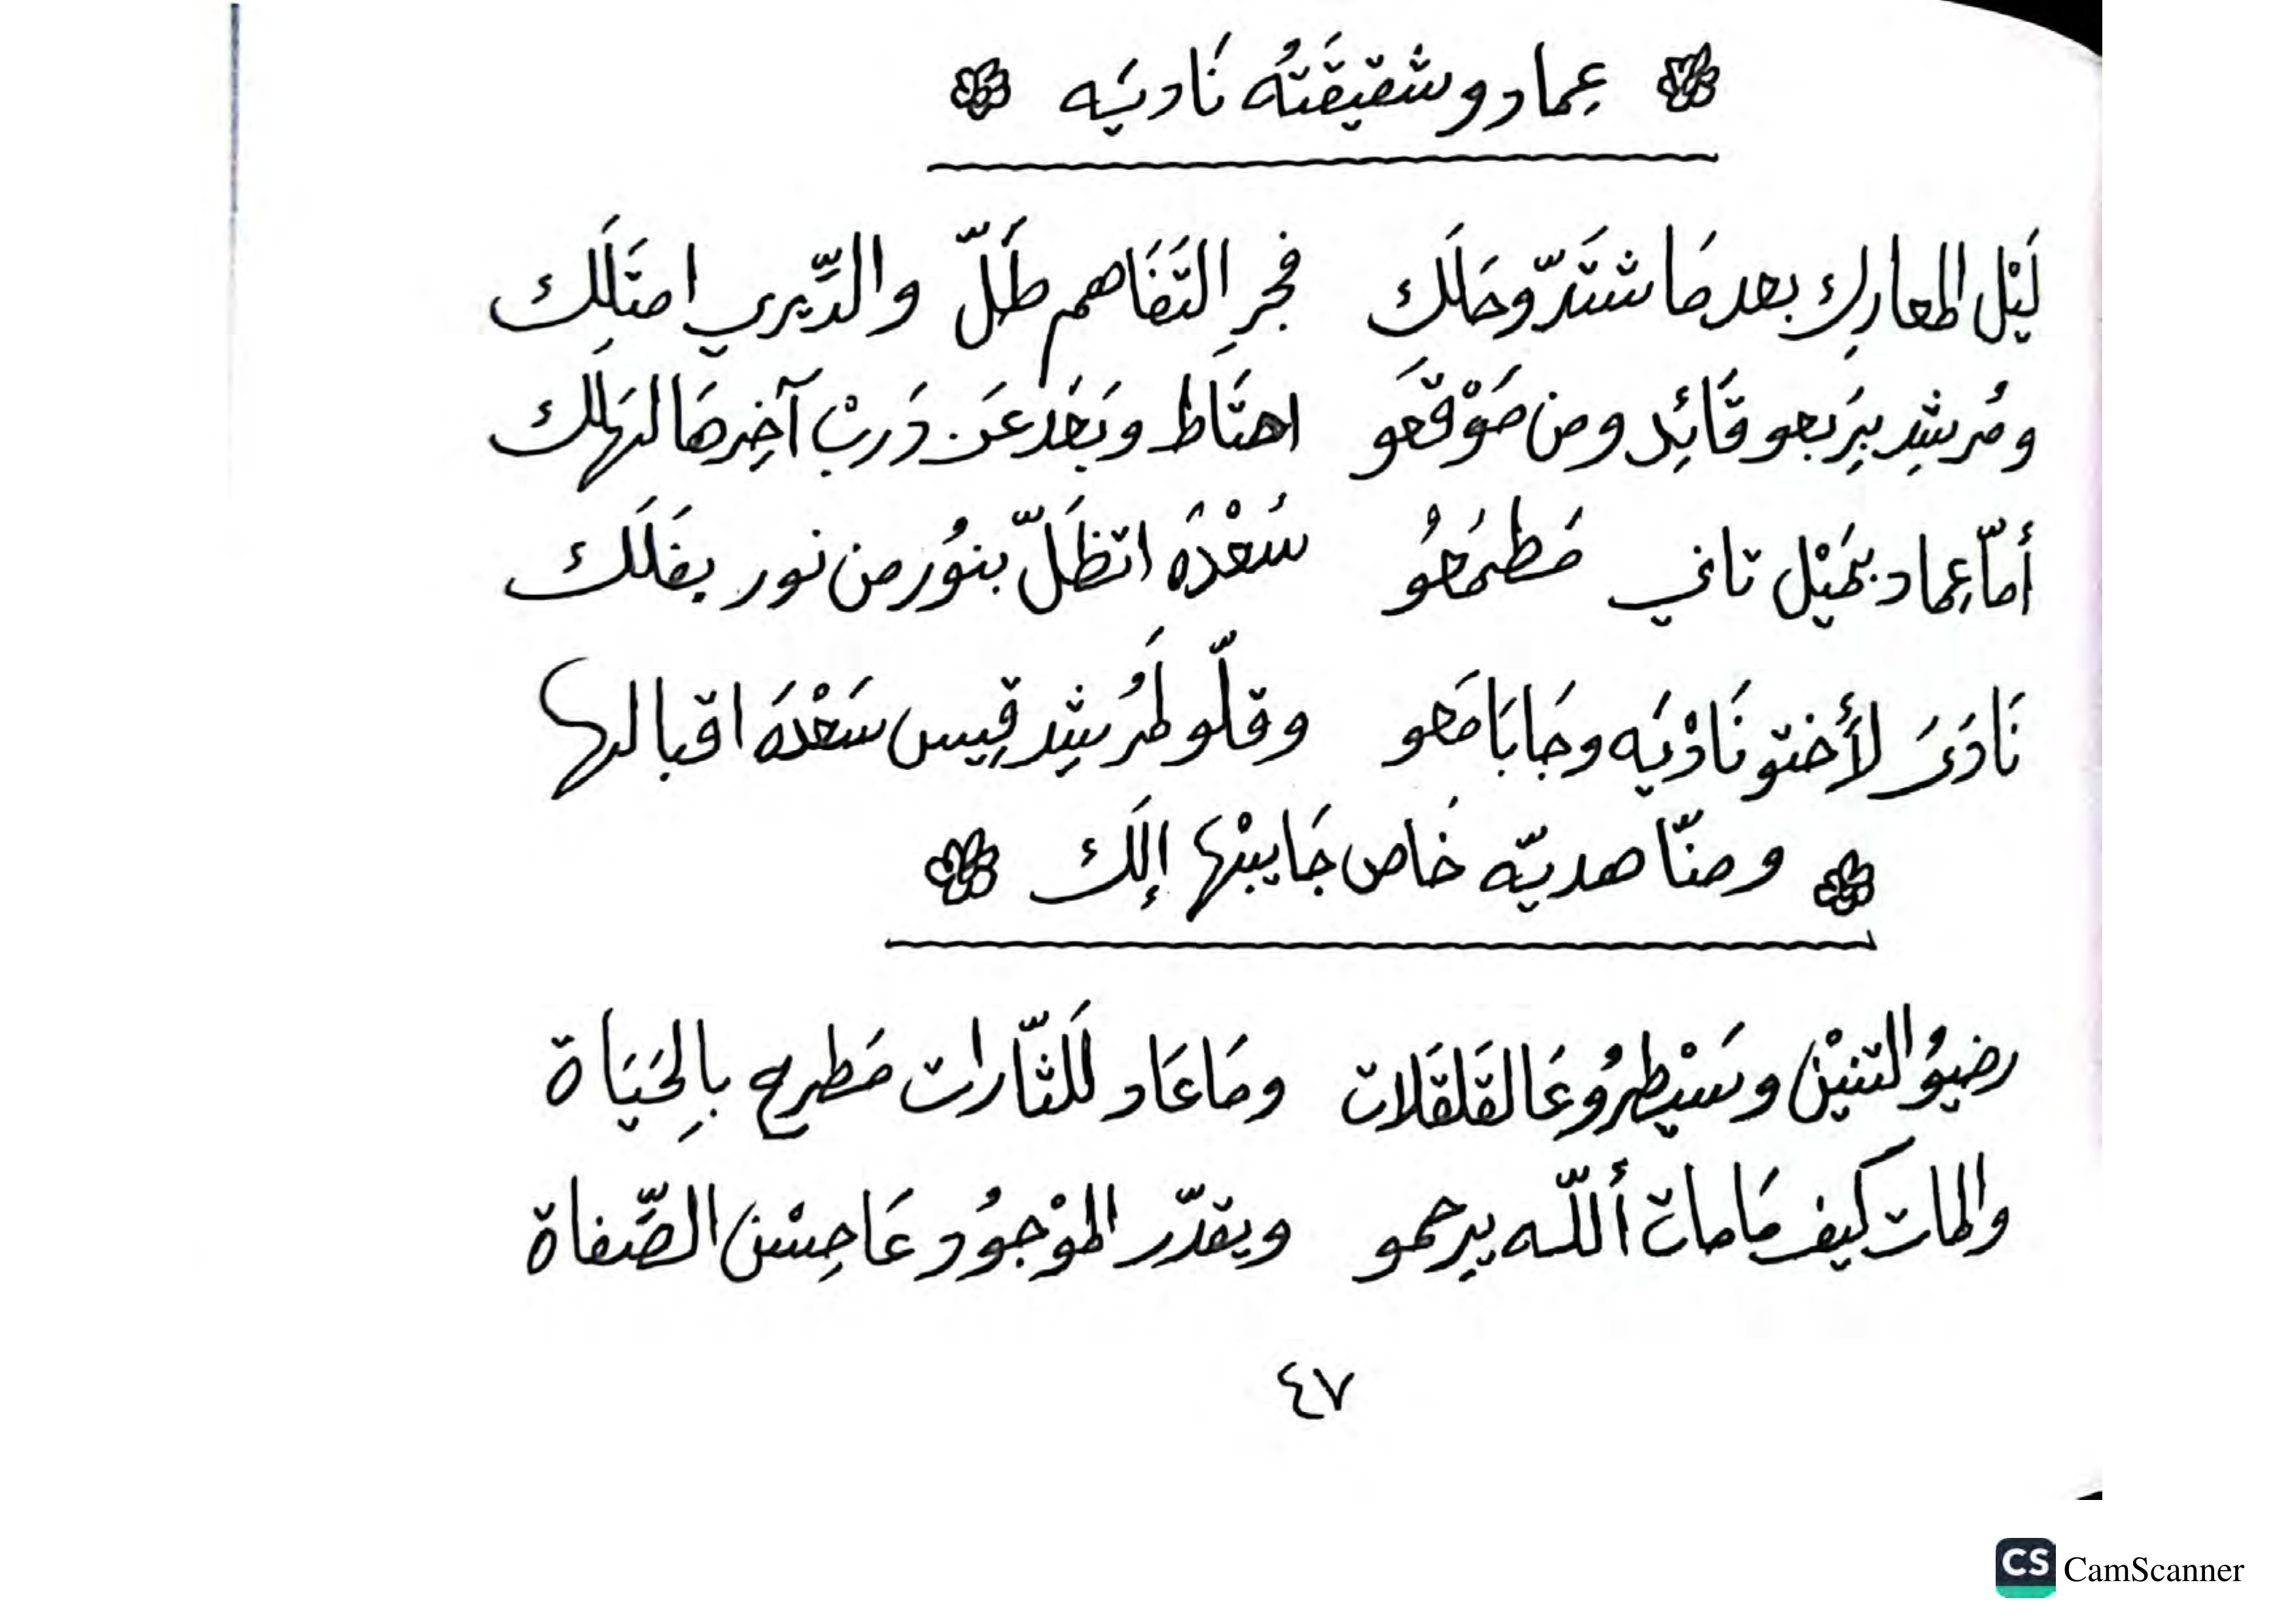 عِماد و شقيقَتهُ نَاديَه
لَيْل المعارِك بعد مَا شتَدّ وحَلَك فجرِ التَفَاهم طَلّ والدّيري امتَلَك
ومُرشِد بِرَبعو قَائِد ومن مَوْقَعو اهتَاط وبَعَد عَن دَربْ آخِرهَا لهَلَك
أمّا عِماد بمَيْل تاني مَطمَعُو سُعْدَه اتظَلّ بنوُر من نور بفَلَك
نَادَىَ لأختو نَادْيَه وجَابَا مَعو وقلّو لمُرَشِد قِيس سَعْدَه اقبالها
ومنّا هديّه خَاص جَايبْها إلَك
رضيوُ التنيْن وسَيْطروُ عَالقَلقَلات ومَا عَاد لَلثّارات مَطرح بالِحَيَاة
والمات كيف مَا مات أللّه يرحمو ويقدّر الموْجوُد عَا حِسْن الصّفاة
٤٧
CS CamScanner